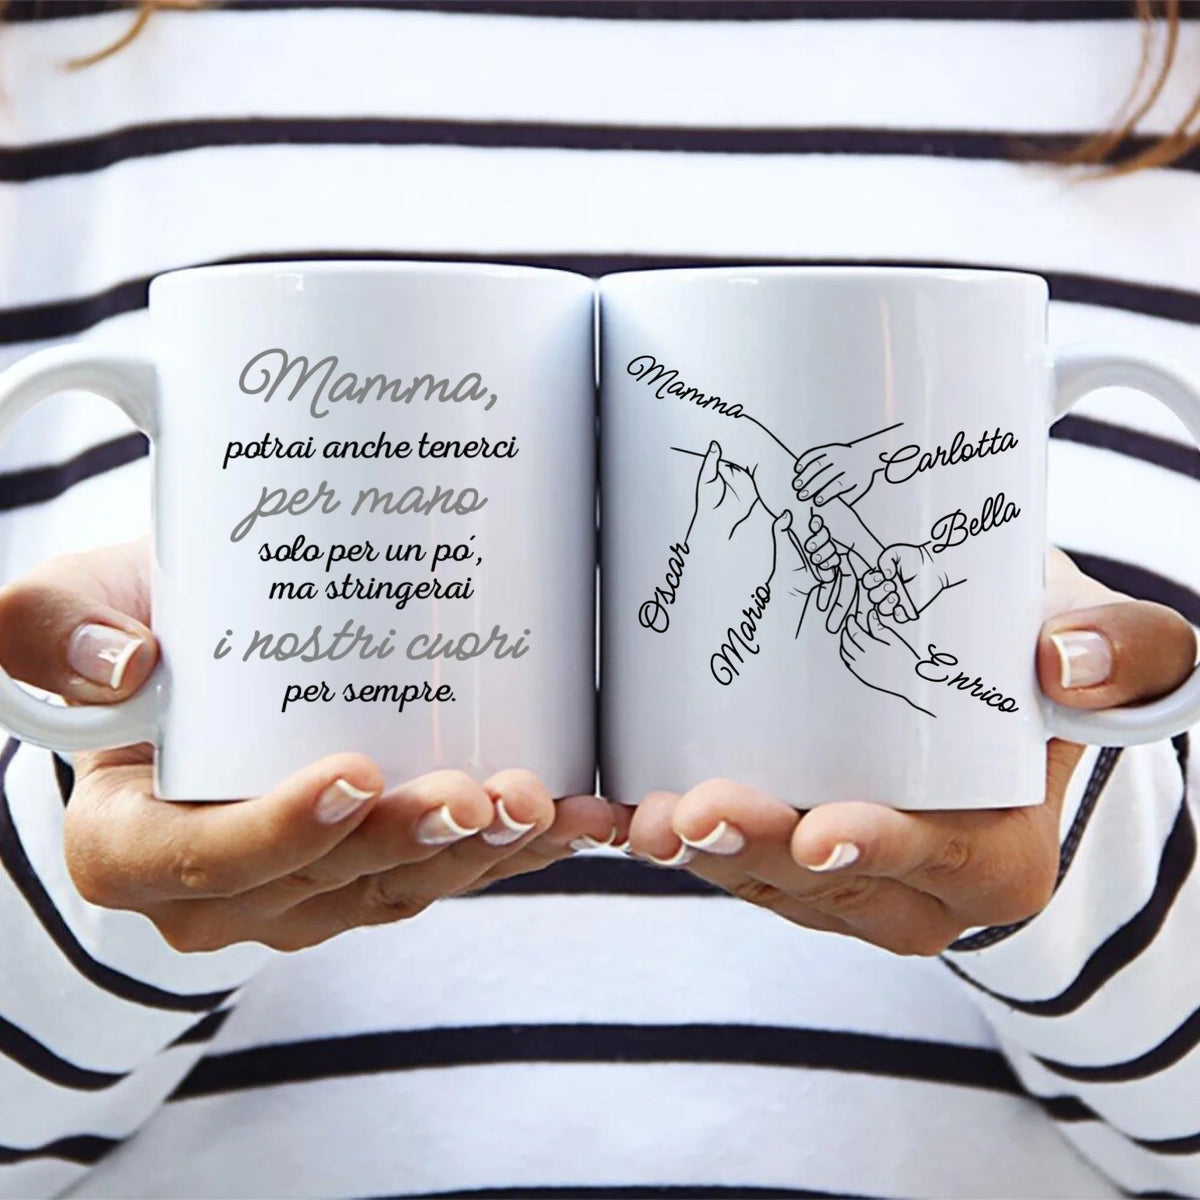 Mamma,
potrai anche tenerci
per mano
solo per un po´,
ma stringerai
i nostri cuori
per sempre.
Mamma
Carlotta
Bella
Oscar
Mario
Enrico